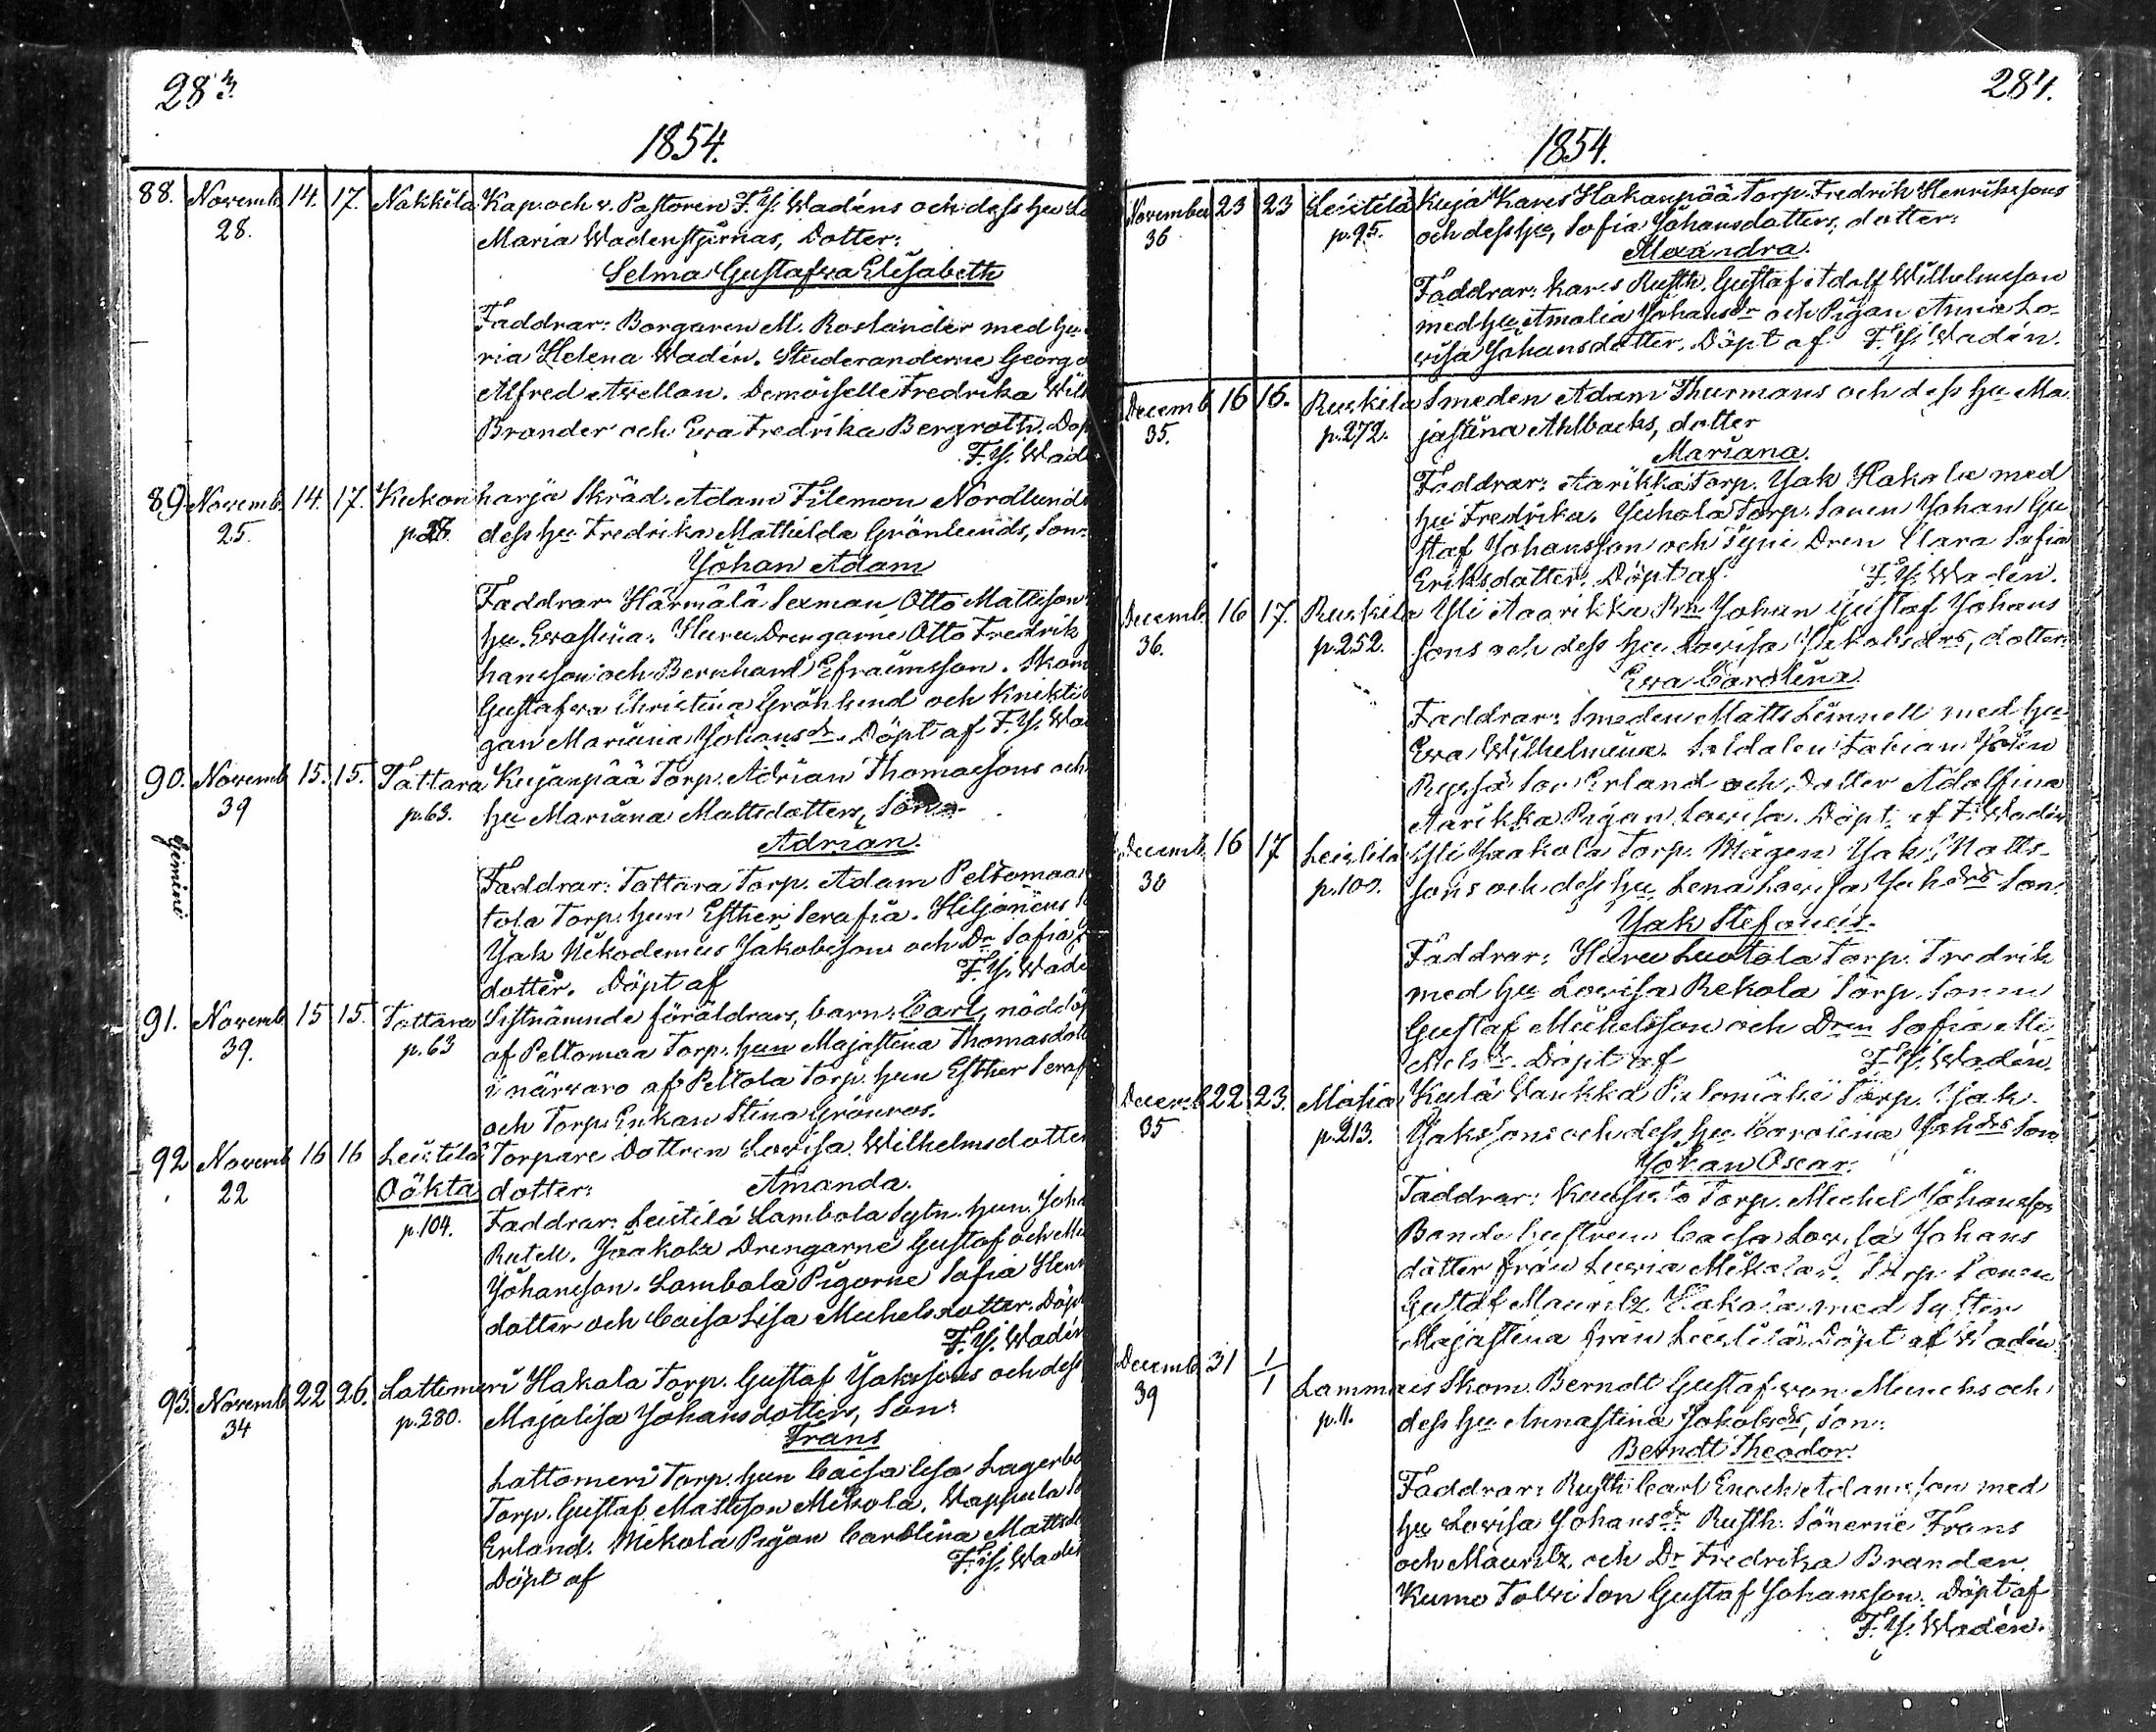 283.
1854.
88. Novemb. 14. 17. Nakkila Kap. och v. Pastoren F. Y. Wadéns och dess hu
28. Maria Wadenstjernas, Dotter:
Selma Gustafva Elisabeth
Faddrar: Borgaren M. Roslander med hu
ria Helena Wadén. Studeranderne Georg
Alfred Avellan. Demoiselle Fredrika
Brander och Eva Fredrika Bergroth. Döp
F. Y. Wad
89. Novemb. 14. 17. Kukonharja Skräd. Adam Filemon Nordlund
25. dess hu Fredrika Mathilda Grönlunds, Son:
Johan Adam
Faddrar Härmälä Sexman Otto Mattsson
hu. Evastina. Huru Drengarne Otto Fredrik
hansson och Bernhard Efraimsson. Skom
Gustafva Christina Grönlund och Knikti
gan Mariana Johansdr. Döpt af F. Y. Wa
90. Novemb. 15. 15. Tattara Kujanpää Torp. Adrian Thomassons och
39 p. 63. hu Mariana Mattsdotters, Son
Gemini
Adrian.
Faddrar: Tattara Torp. Adam Peltomaa
tola Torp. hun Esther Serafia. Hiljanens
Jak Nikodemus Jakobsson och Dr Sofia
dotter. Döpt af F. Y. Wade
91. Novemb. 15 15. Tattara Sistnämnde föräldrars, barn: Carl, nöddöp
39. p. 63 af Peltomaa Torp. hun Majastina Thomasdott
i närvaro af Peltola Torp. hun Esther Seraf
och Torp. Enkan Stina Grönroos.
92 Novemb 16 16 Leistilä Torpare Dottren Lovisa Wilhelmsdotter
22 Oäkta dotter: Amanda.
p. 104. Faddrar: Leistilä Lambola Sytn. hun. Joha
Jaakola Drengarne Gustaf och
Johansson. Lambola Pigorne Sofia Hen
dotter och Caisa Lisa Michelsdotter. Döp
F. Y. Wadén
93. Novemb 22 26. Lattomeri Hakala Torp. Gustaf Jakssons och dess
34 p. 280. Majalisa Johansdotters, Son:
Frans
Lattomeri Torp. hun Caisa Lisa Lagerbo
Torp. Gustaf Mattsson Mikola. Vappula
Erland. Mikola Pigan Carolina Matts
Döpt af F. Y. Wadé
284.
1854.
November 23 23 Leistilä Kuja Kares Hakanpää Torp. Fredrik Henrikssons
36 p. 95. och dess hu, Sofia Johansdotters, dotter:
Alexandra.
Faddrar: Kares Rusth. Gustaf Adolf Wilhelmsson
med hu Amalia Johansdr och Pigan Anna Lo-
visa Johansdotter. Döpt af F. Y. Wadén.
Decemb 16 16. Ruskila Smeden Adam Thurmans och dess hu Ma
35. p. 272. jastina Ahlbacks, dotter
Mariana.
Faddrar: Aarikka Torp. Jak Hakala med
hu Fredrika. Juhola Torp. Sonen Johan Gu
staf Johansson och Dren Clara Sofia
Eriksdotter. Döpt af F. Y. Wadén.
Decemb 16 17. Ruskila Yli Aarikka Johan Gustaf Johans
36. p. 252. sons och dess hu Lovisa Jakobsdrs, dotter:
Eva Carolina
Faddrar: Smeden Matts Limnell med hu
Eva Wilhelmina. Soldaten Fabian
Son Erland och Dotter Adolfina
Aarikka Pigan Lovisa. Döpt af F. Wadén
Decemb. 16 17 Leistilä Yli Jaakola Torp. Mågen Jak Matts-
30 p. 100. sons och dess hu Lena Lovisa Johdrs Son:
Jak Stefanus.
Faddrar: Huru Luotola Torp. Fredrik
med hu Lovisa Rekola Torp. Sonen
Gustaf Michelsson och Dren Sofia Mi
chelsdr. Döpt af F. Y. Wadén.
Decemb 22 23. Kylä Vankka Torp. Jak
35 p. 213. Jakssons och dess hu Carolina Johdrs Son
Johan Oscar.
Faddrar: Torp. Michel Johansson
Bonde hustrun Caisa Lovisa Johans
dotter från Luvia Mikola. Torp. Sonen
Gustaf Mauritz Hakala med Syster
Majastina från Leistilä. Döpt af Wadén.
Decemb 31 1/1 Lammais Skom. Berndt Gustaf von Munchs och
39 p. 11. dess hu Annastina Jakobsdrs, son:
Berndt Theodor.
Faddrar: Rusth. Carl Enoch Adamsson med
hu Lovisa Johansdr Rusth. Sönerne Frans
och Mauritz och Dr Fredrika Brander
Kumo Tolvi Son Gustaf Johansson. Döpt af
F. Y. Wadén.